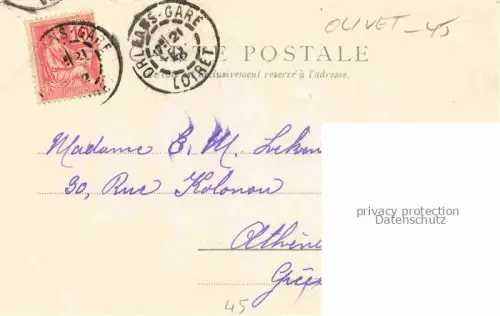 OLIVET - 45
ORLEANS-GARE
LOIRET
TE POSTALE
exclusivement reservé à l'adresse.
Madame E. M.
30, Rue Kolonou
Athène
Grèce
privacy protection
Datenschutz
45